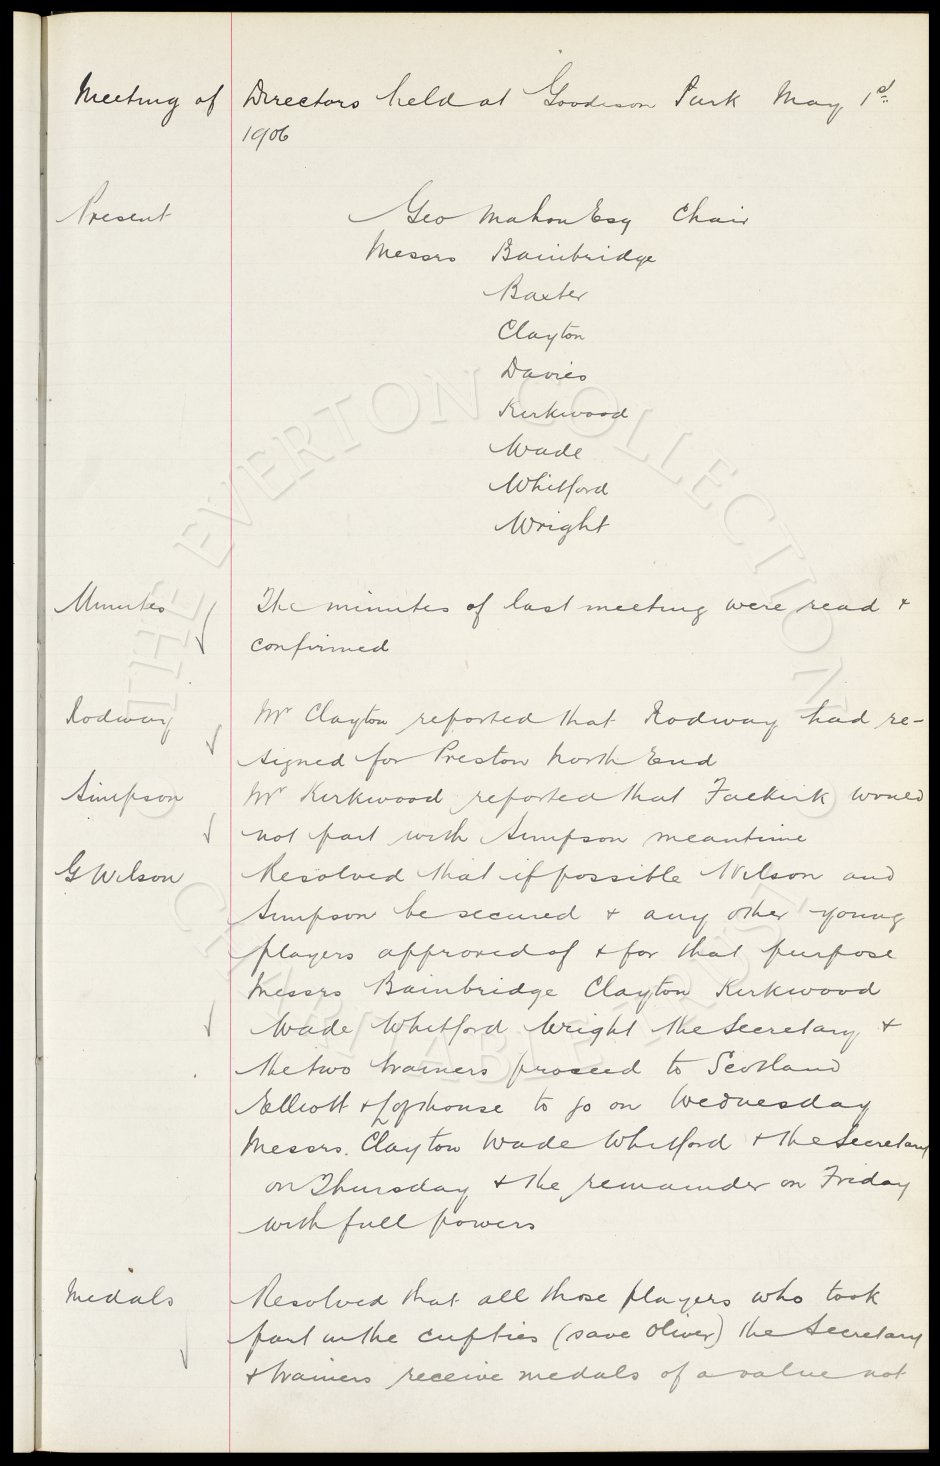 Meeting of Directors held at Goodison Park May 1st
1906
Present Geo Mahon Esq Chair
Messrs Bainbridge
Baxter
Clayton
Davies
Kirkwood
Wade
Whitford
Wright
Minutes The minutes of last meeting were read +
confirmed
Rodway Mr Clayton reported that Rodway had re-
signed for Preston North End
Simpson Mr Kirkwood reported that Falkirk would
not part with Simpson meantime
G Wilson Resolved that if possible Wilson and
Simpson be secured + any other young
players approved of + for that purpose
Messrs Bainbridge Clayton Kirkwood
Wade Whitford Wright the Secretary +
the two trainers proceed to Scotland
Elliott + Lofthouse to go on Wednesday
Messrs. Clayton Wade Whitford + the Secretary
on Thursday + the remainder on Friday
with full powers
Medals Resolved that all those players who took
part in the cupties (save Oliver) the Secretary
+ trainers receive medals of a value not
THE EVERTON COLLECTION
CHARITABLE TRUST